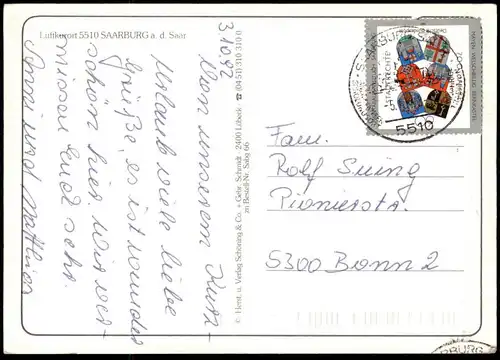 Luftkurort 5510 SAARBURG a. d. Saar
3.10.92
Von unserem Kurz-
urlaub viele liebe
Grüße, es ist wunder
schön hier. Wir ver-
missen Euch sehr.
Anni und Matthias
© Herst. u. Verlag Schöning & Co. + Gebr. Schmidt · 2400 Lübeck · ☎ (04 51) 310 310 0
zu Bestell-Nr. Sabg 66
5510
Fam.
Rolf Suing
Pionierstr.
5300 Bonn 2